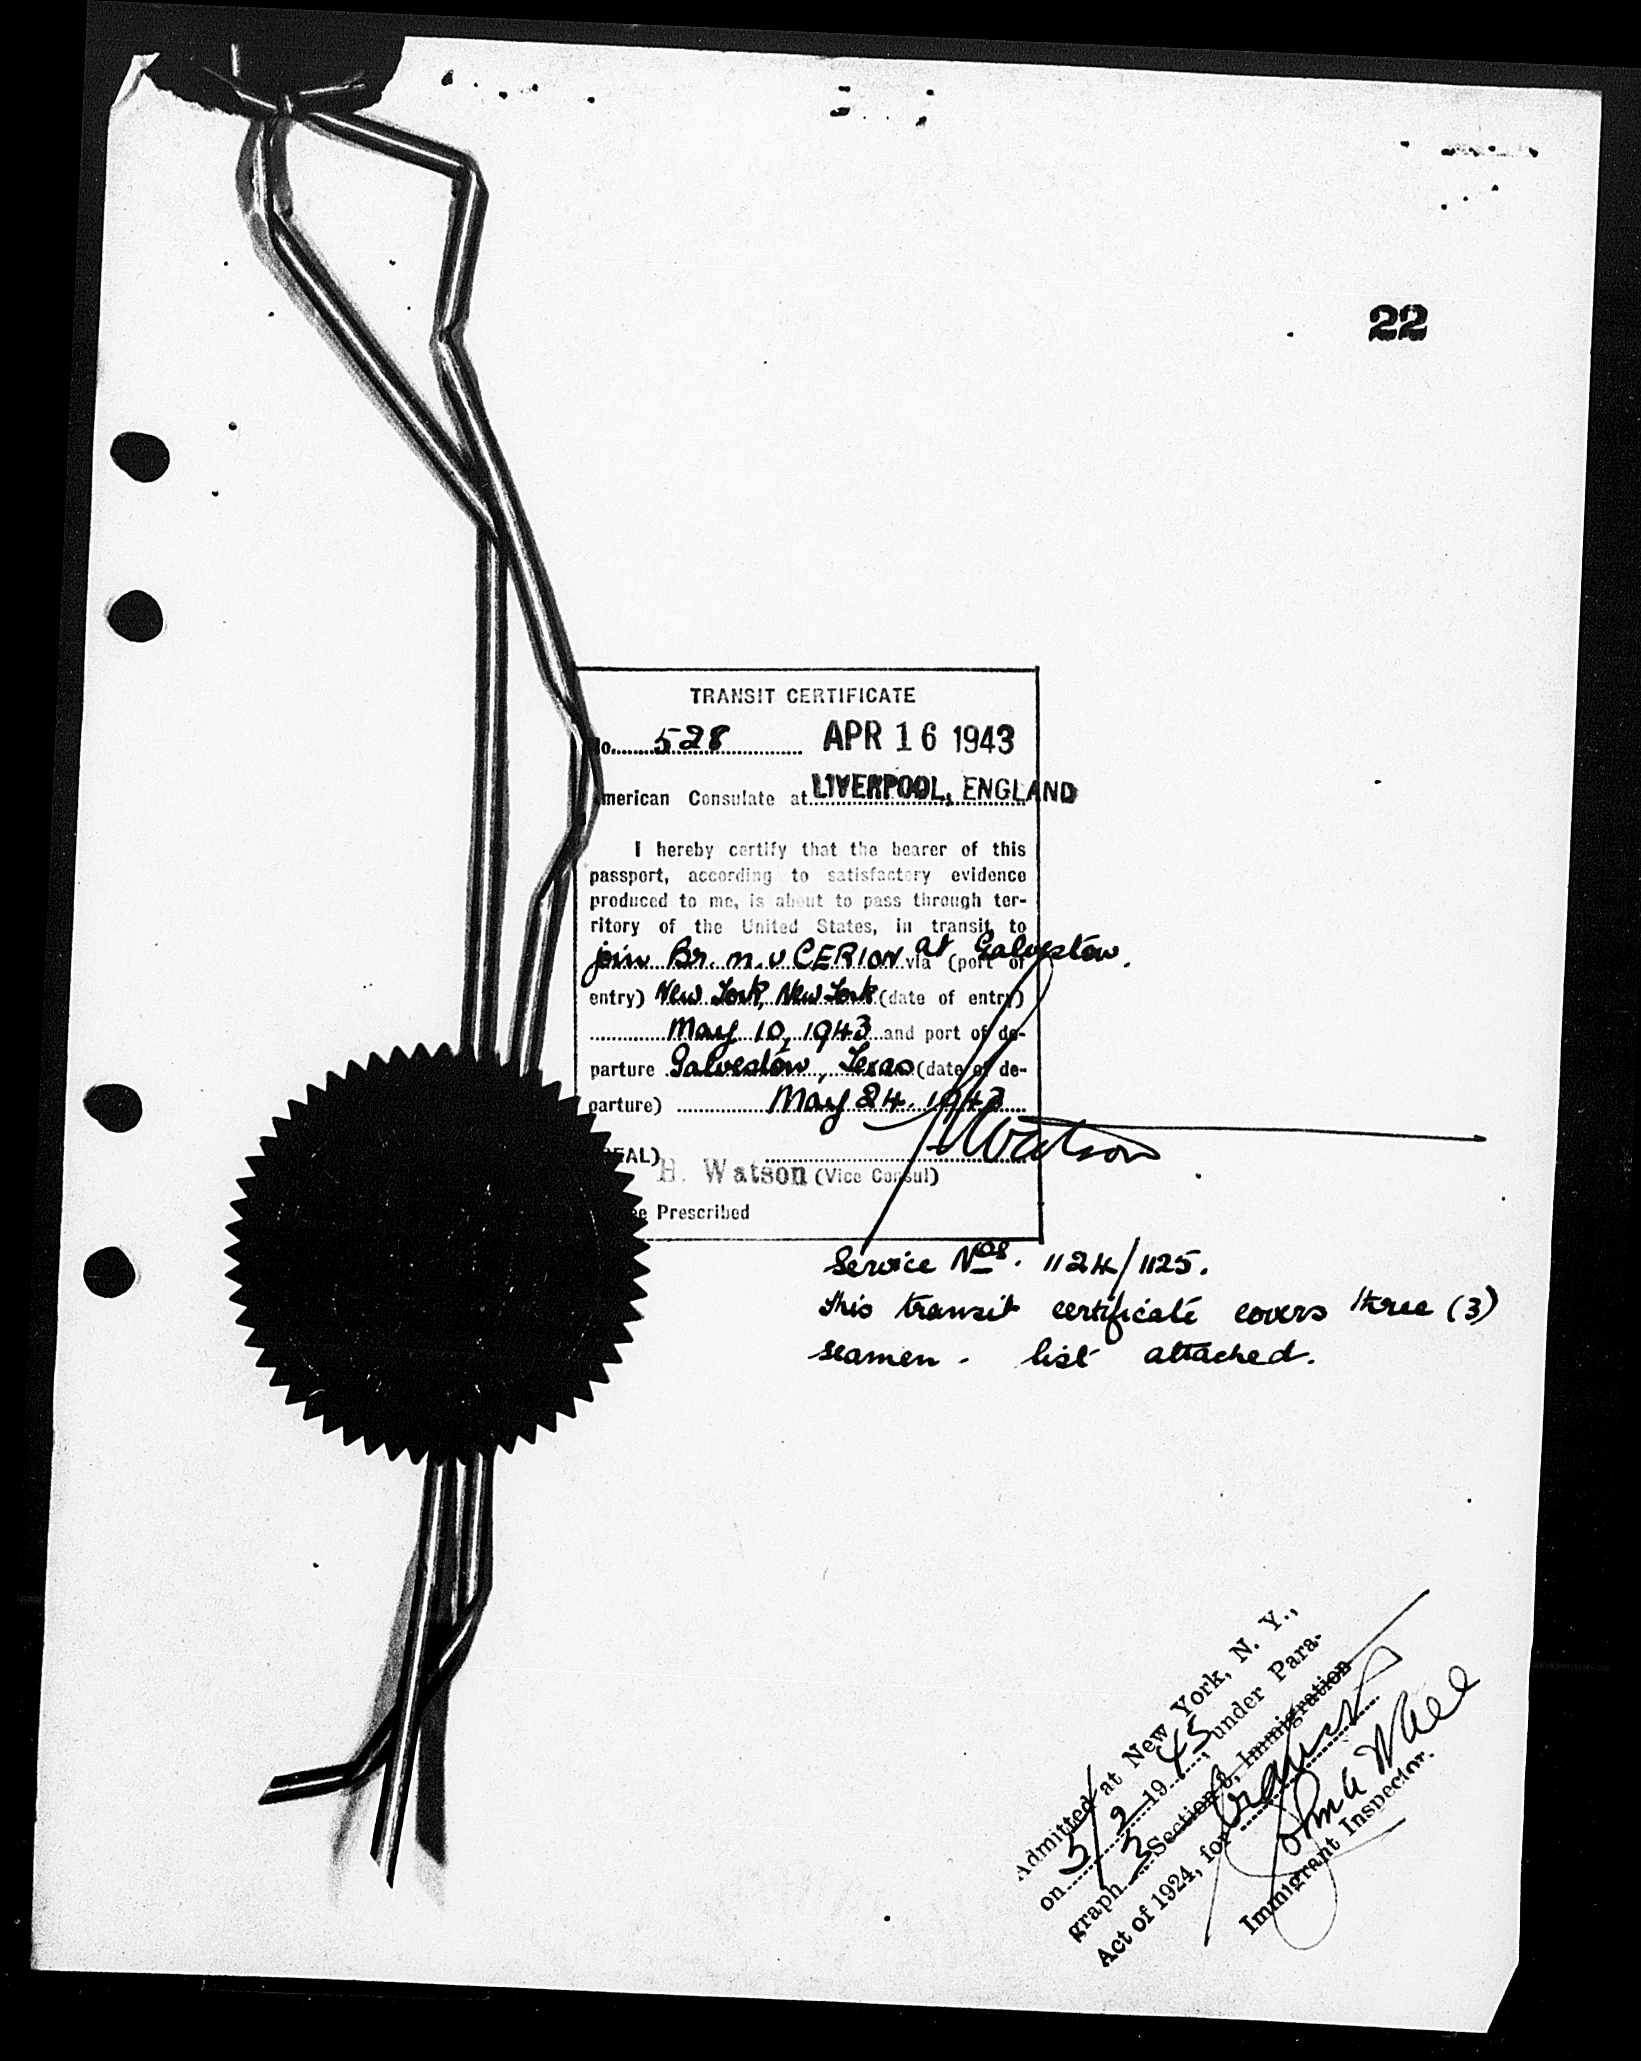 22
TRANSIT CERTIFICATE
No. 528 APR 16 1943
American Consulate at LIVERPOOL, ENGLAND
I hereby certify that the bearer of this
passport, according to satisfactory evidence
produced to me, is about to pass through ter-
ritory of the United States, in transit to
join Br. m.v CERION at Galveston. via (port of
entry) New York, New York (date of entry)
May 10, 1943 and port of de-
parture Galveston, Texas (date of de-
parture) May 24. 1943
Watson
(SEAL)
H. Watson (Vice Consul)
Prescribed
Service Nos. 1124/1125.
This transit certificate covers three (3)
seamen. list attached.
Admitted at New York, N. Y.,
on 5/2 1943, under Para-
graph 3 Section 3, Immigration
Act of 1924, for transit
Immigrant Inspector.